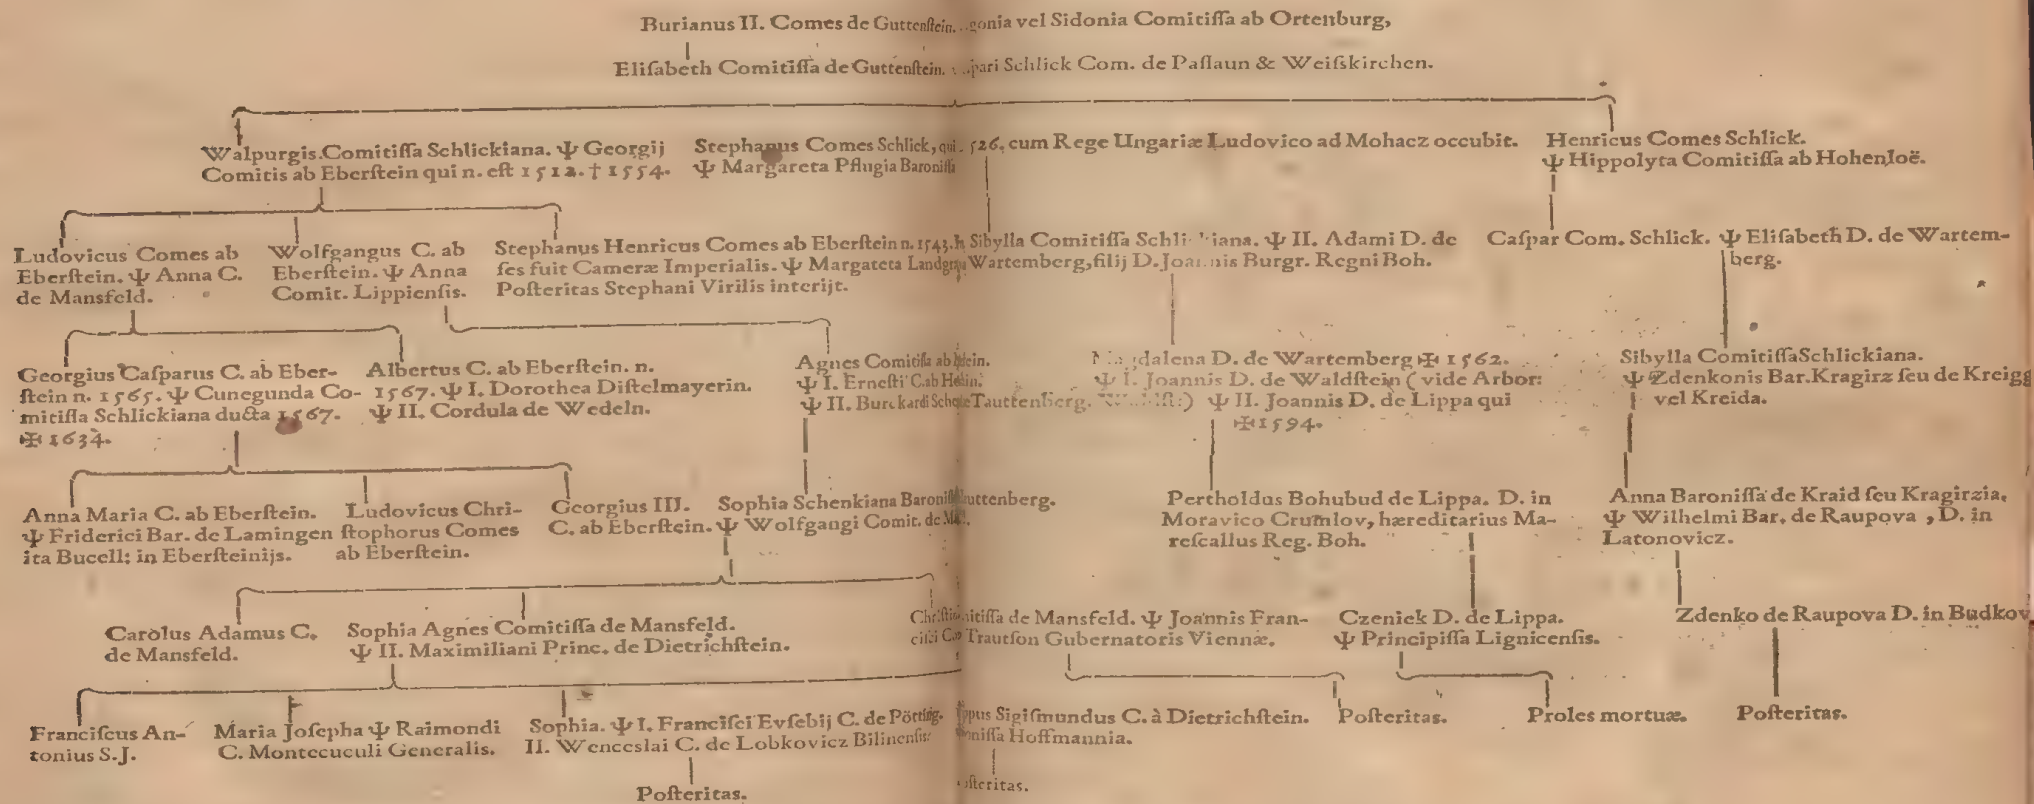 Burianus II. Comes de Guttenſtein. gonia vel Sidonia Comitiſſa ab Ortenburg,
Eliſabeth Comitiſſa de Guttenſtein. pari Schlick Com. de Paſſaun & Weiſskirchen.
Walpurgis. Comitiſſa Schlickiana. Ψ Georgij
Comitis ab Eberſtein qui n. eſt 1512. † 1554.
Stephanus Comes Schlick, qui 526. cum Rege Ungariæ Ludovico ad Mohacz occubit.
Ψ Margareta Pflugia Baroniſſa
Henricus Comes Schlick.
Ψ Hippolyta Comitiſſa ab Hohenloë.
Ludovicus Comes ab
Eberſtein. Ψ Anna C.
de Mansfeld.
Wolfgangus C. ab
Eberſtein. Ψ Anna
Comit. Lippienſis.
Stephanus Henricus Comes ab Eberſtein n. 1543.
ſes fuit Cameræ Imperialis. Ψ Margateta
Poſteritas Stephani Virilis interijt.
Sibylla Comitiſſa Ψ II. Adami D. de
Wartemberg, filij D. Joannis Burgr. Regni Boh.
Caſpar Com. Schlick. Ψ Eliſabeth D. de Wartem-
berg.
Georgius Caſparus C. ab Eber-
ſtein n. 1565. Ψ Cunegunda Co-
mitiſſa Schlickiana ducta 1567.
✠ 1634.
Albertus C. ab Eberſtein. n.
1567. Ψ I. Dorothea Diſtelmayerin.
Ψ II. Cordula de Wedeln.
Agnes Comitiſſa ab
Ψ I. Erneſti C. ab
Ψ II. Burckardi Tauttenberg.
dalena D. de Wartemberg ✠ 1562.
Ψ I. Joannis D. de Waldſtein (vide Arbor:
Ψ II. Joannis D. de Lippa qui
✠ 1594.
Sibylla Comitiſſa Schlickiana.
Ψ Zdenkonis Bar. Kragirz ſeu de Kreigg
vel Kreida.
Anna Maria C. ab Eberſtein.
Ψ Friderici Bar. de Lamingen
ita Bucell: in Eberſteinijs.
Ludovicus Chri-
ſtophorus Comes
ab Eberſtein.
Georgius III.
C. ab Eberſtein.
Sophia Schenkiana uttenberg.
Ψ Wolfgangi Comit. de
Pertholdus Bohubud de Lippa. D. in
Moravico Crumlov, hæreditarius Ma-
reſcallus Reg. Boh.
Anna Baroniſſa de Kraid ſeu Kragirzia,
Ψ Wilhelmi Bar. de Raupova, D. in
Latonovicz.
Carolus Adamus C.
de Mansfeld.
Sophia Agnes Comitiſſa de Mansfeld.
Ψ II. Maximiliani Princ. de Dietrichſtein.
itiſſa de Mansfeld. Ψ Joannis Fran-
Trautſon Gubernatoris Viennæ.
Czeniek D. de Lippa.
Ψ Principiſſa Lignicenſis.
Zdenko de Raupova D. in Budkov
Franciſcus An-
tonius S. J.
Maria Joſepha Ψ Raimondi
C. Montecuculi Generalis.
Sophia. Ψ I. Franciſci Evſebij C. de Pötting.
II. Wenceslai C. de Lobkovicz Bilinenſis
ppus Sigiſmundus C. à Dietrichſtein.
niſſa Hoffmannia.
Poſteritas.
Proles mortuæ.
Poſteritas.
Poſteritas.
ſteritas.